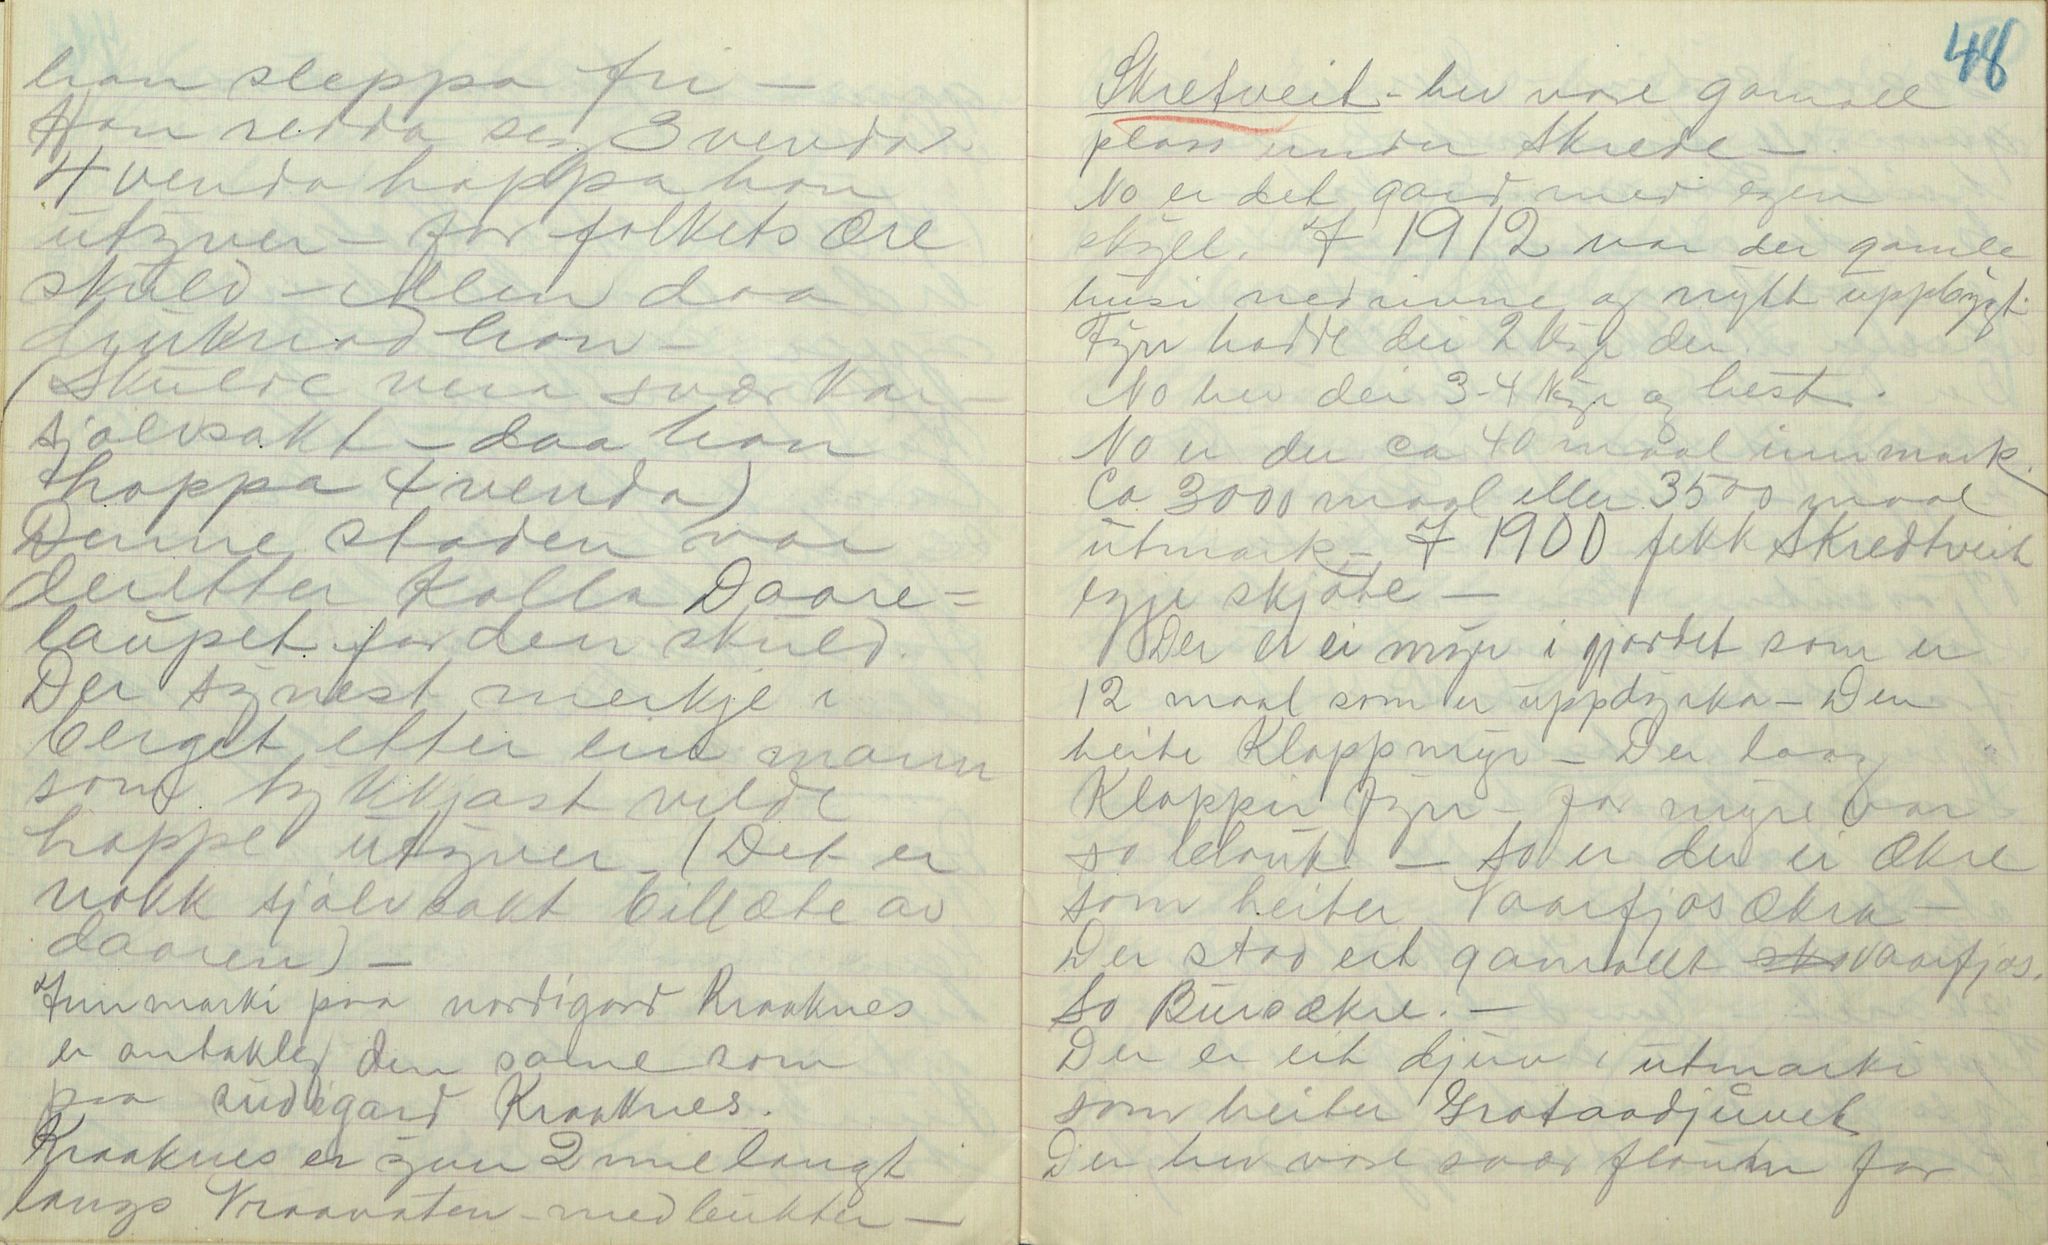 han sleppa fri —
Han redda seg 3 venda.
4 venda hoppa han
utyver — for folkets ære
skuld — Men daa
djuknad han —
(Skulde vera svær kar —
sjølvsakt — daa han
hoppa 4 venda)
Denne staden var
deretter kalla Daare=
laupet for den skuld.
Der synest merkje i
berget etter ein mann
som tykkjast vilde
hoppe utyver. (Det er
nokk sjølvsakt billæte av
daaren) —
Innmarki paa nordigard Kraaknes
er antakleg den same som
paa sudigard Kraaknes.
Kraaknes er yvir 2 mil langt
langs Vraavaten — med bukter —
48
Skretveit — hev vore gamall
plass under Skrede —
No er det gard med eigen
skyll. I 1912 var dei gamle
husi nedrivne og nytt uppbygt.
Fyrr hadde dei 2 kyr der.
No hev dei 3-4 kyr og hest.
No er der ca 40 maal innmark.
Ca 3000 maal eller 3500 maal
utmark — I 1900 fekk Skredtveit
eige skjøte —
Der er ei myr i gjordet som er
12 maal som er uppdyrka — Den
heite Kloppmyr — Der laag
Kloppir fyrr — for myre var
so blaut — So er der ei ækre
som heiter Vaarfjosækra —
Der stod eit gamallt vaarfjos.
So Buroækre. —
Der er eit djuv i utmarki
som heiter Grotaadjuvet
Der hev vore svær flaum for